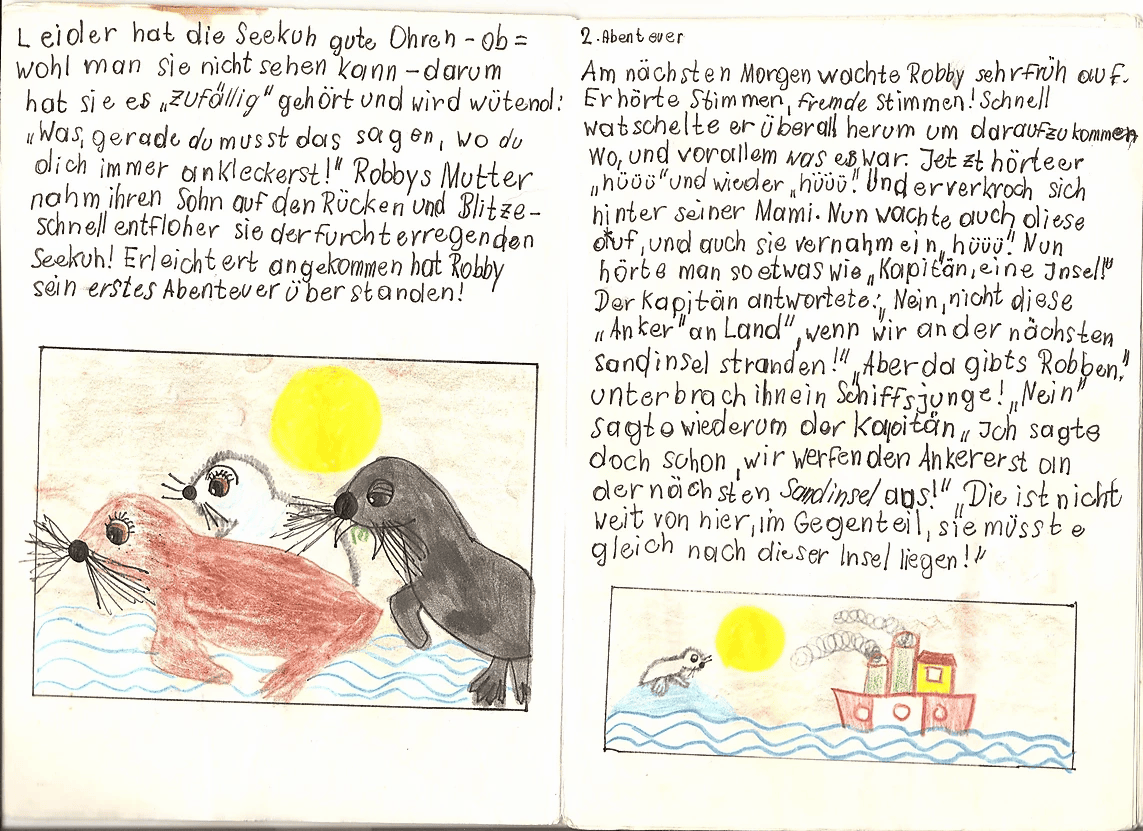 Leider hat die Seekuh gute Ohren - ob=
wohl man sie nicht sehen kann - darum
hat sie es „zufällig" gehört und wird wütend:
„Was, gerade du musst das sagen, wo du
dich immer ankleckerst!" Robbys Mutter
nahm ihren Sohn auf den Rücken und Blitze-
schnell entfloher sie der furchterregenden
Seekuh! Erleichtert angekommen hat Robby
sein erstes Abenteuer überstanden!
2. Abenteuer
Am nächsten Morgen wachte Robby sehr früh auf.
Er hörte Stimmen, fremde Stimmen! Schnell
watschelte er überall herum um daraufzukommen
wo, und vorallem was es war. Jetzt hörte er
„hüüü" und wieder „hüüü". Und er verkroch sich
hinter seiner Mami. Nun wachte auch diese
auf, und auch sie vernahm ein „hüüü". Nun
hörte man so etwas wie „Kapitän, eine Insel!"
Der Kapitän antwortete: „Nein, nicht diese
„Anker" an Land", wenn wir an der nächsten
sandinsel stranden!" „Aber da gibts Robben",
unterbrach ihn ein Schiffsjunge! „Nein"
sagte wiederum der Kapitän „Ich sagte
doch schon, wir werfen den Anker erst an
der nächsten Sandinsel aus!" „Die ist nicht
weit von hier, im Gegenteil, sie müsste
gleich nach dieser Insel liegen!"